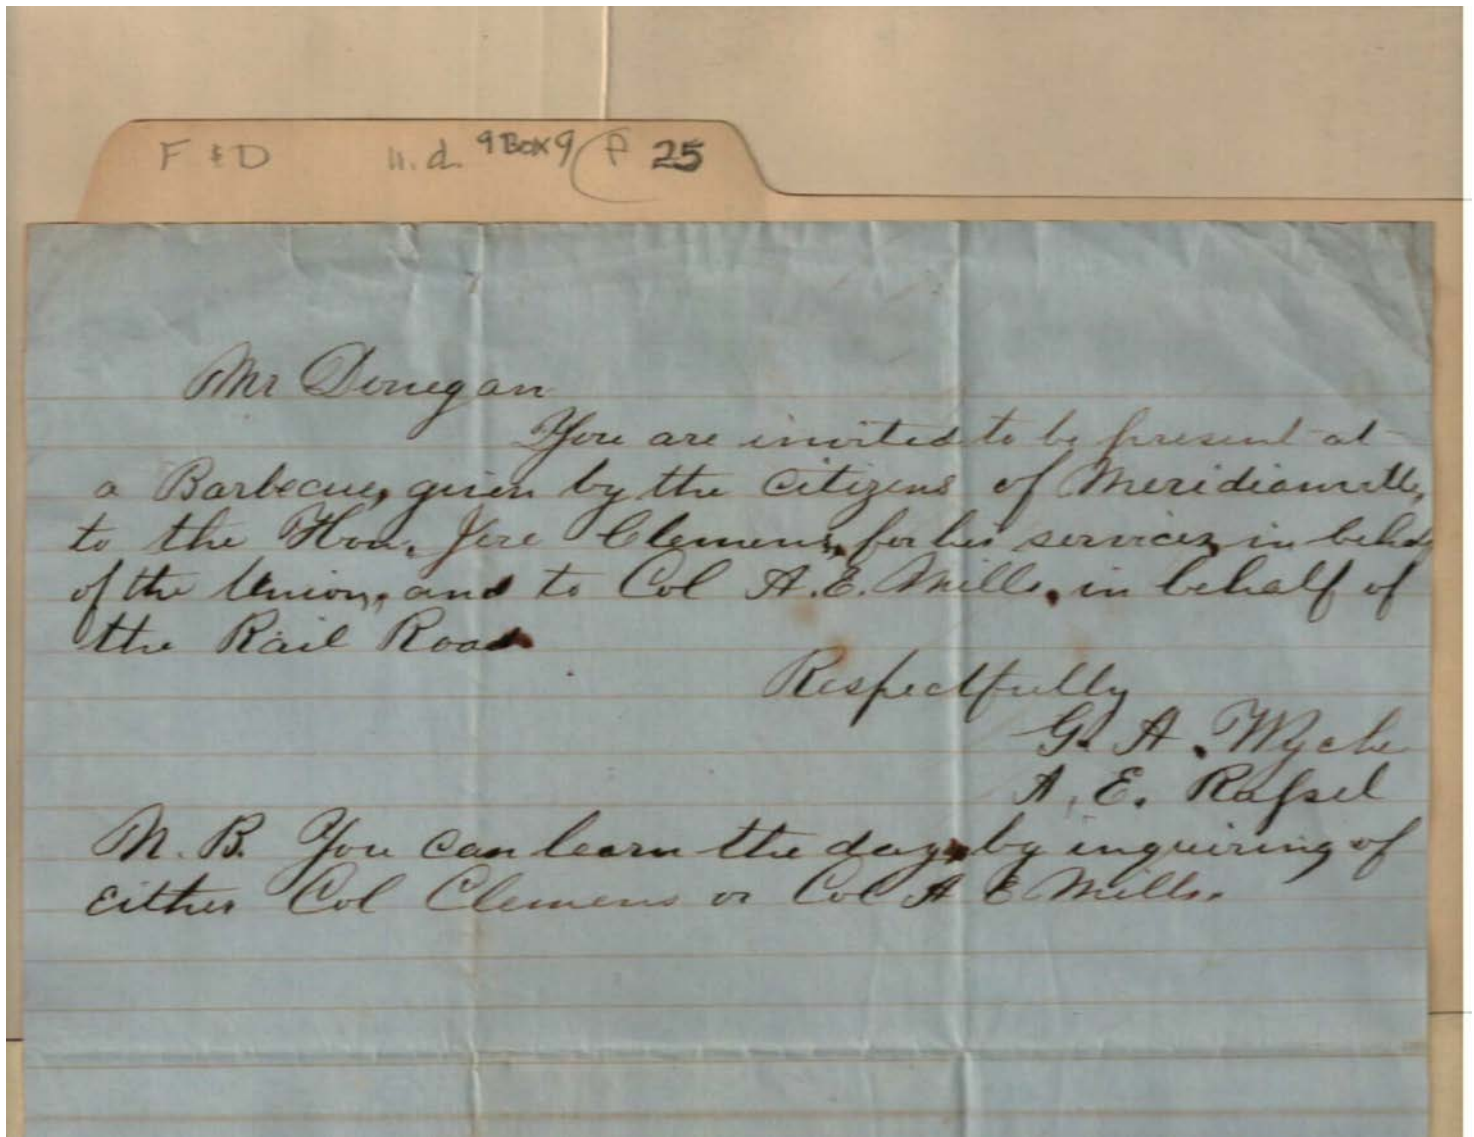 F & D n.d. 9 Box 9 P 25
Mr Donegan
You are invited to be present at
a Barbecue, given by the citizens of Meridianville,
to the Hon. Jere Clemens, for his services in behalf
of the Union, and to Col A. E. Mills, in behalf of
the Rail Road
Respectfully
G. A. Wyche
A. E. Rafsel
N. B. You can learn the day, by inquiring of
either Col Clemens or Col A E Mills.